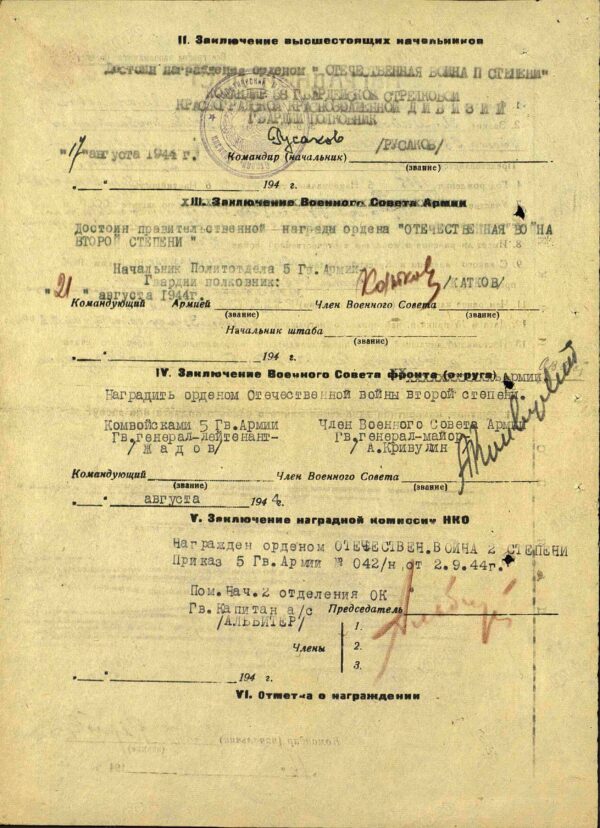 II. Заключение высшестоящих начальников
Достоин награждения орденом " ОТЕЧЕСТВЕННАЯ ВОЙНА П СТЕПЕНИ"
КОМАНДИР 58 ГВАРДЕЙСКОЙ СТРЕЛКОВОЙ
КРАСНОГРАДСКОЙ КРАСНОЗНАМЕННОЙ ДИВИЗИИ
ГВАРДИИ ПОЛКОВНИК
Русаков
"17" августа 1944 г.
Командир (начальник) /РУСАКОВ/
(звание)
" " 194 г.
III. Заключение Военного Совета Армии
Достоин правительственной награды ордена "ОТЕЧЕСТВЕННАЯ ВОЙНА
ВТОРОЙ СТЕПЕНИ "
Начальник Политотдела 5 Гв.Армии
Гвардии полковник: /КАТКОВ/
"21" августа 1944г.
Командующий Армией Член Военного Совета
(звание) (звание)
Начальник штаба
(звание)
" " 194 г.
IV. Заключение Военного Совета фронта (округа) Армии
Наградить орденом Отечественной войны второй степени.
Комвойсками 5 Гв.Армии Член Военного Совета Армии
Гв.генерал-лейтенант- Гв.генерал-майор
/ЖАДОВ/ /А.Кривулин
Командующий Член Военного Совета
(звание) (звание)
" " августа 1944г.
V. Заключение наградной комиссии НКО
Награжден орденом ОТЕЧЕСТВЕН.ВОЙНА 2 СТЕПЕНИ
Приказ 5 Гв.Армии № 042/н от 2.9.44г.
Пом.Нач.2 отделения ОК
Гв.Капитан а/с Председатель
/АЛЬБИТЕР/
Члены
1.
2.
3.
" " 194 г.
VI. Отметка о награждении